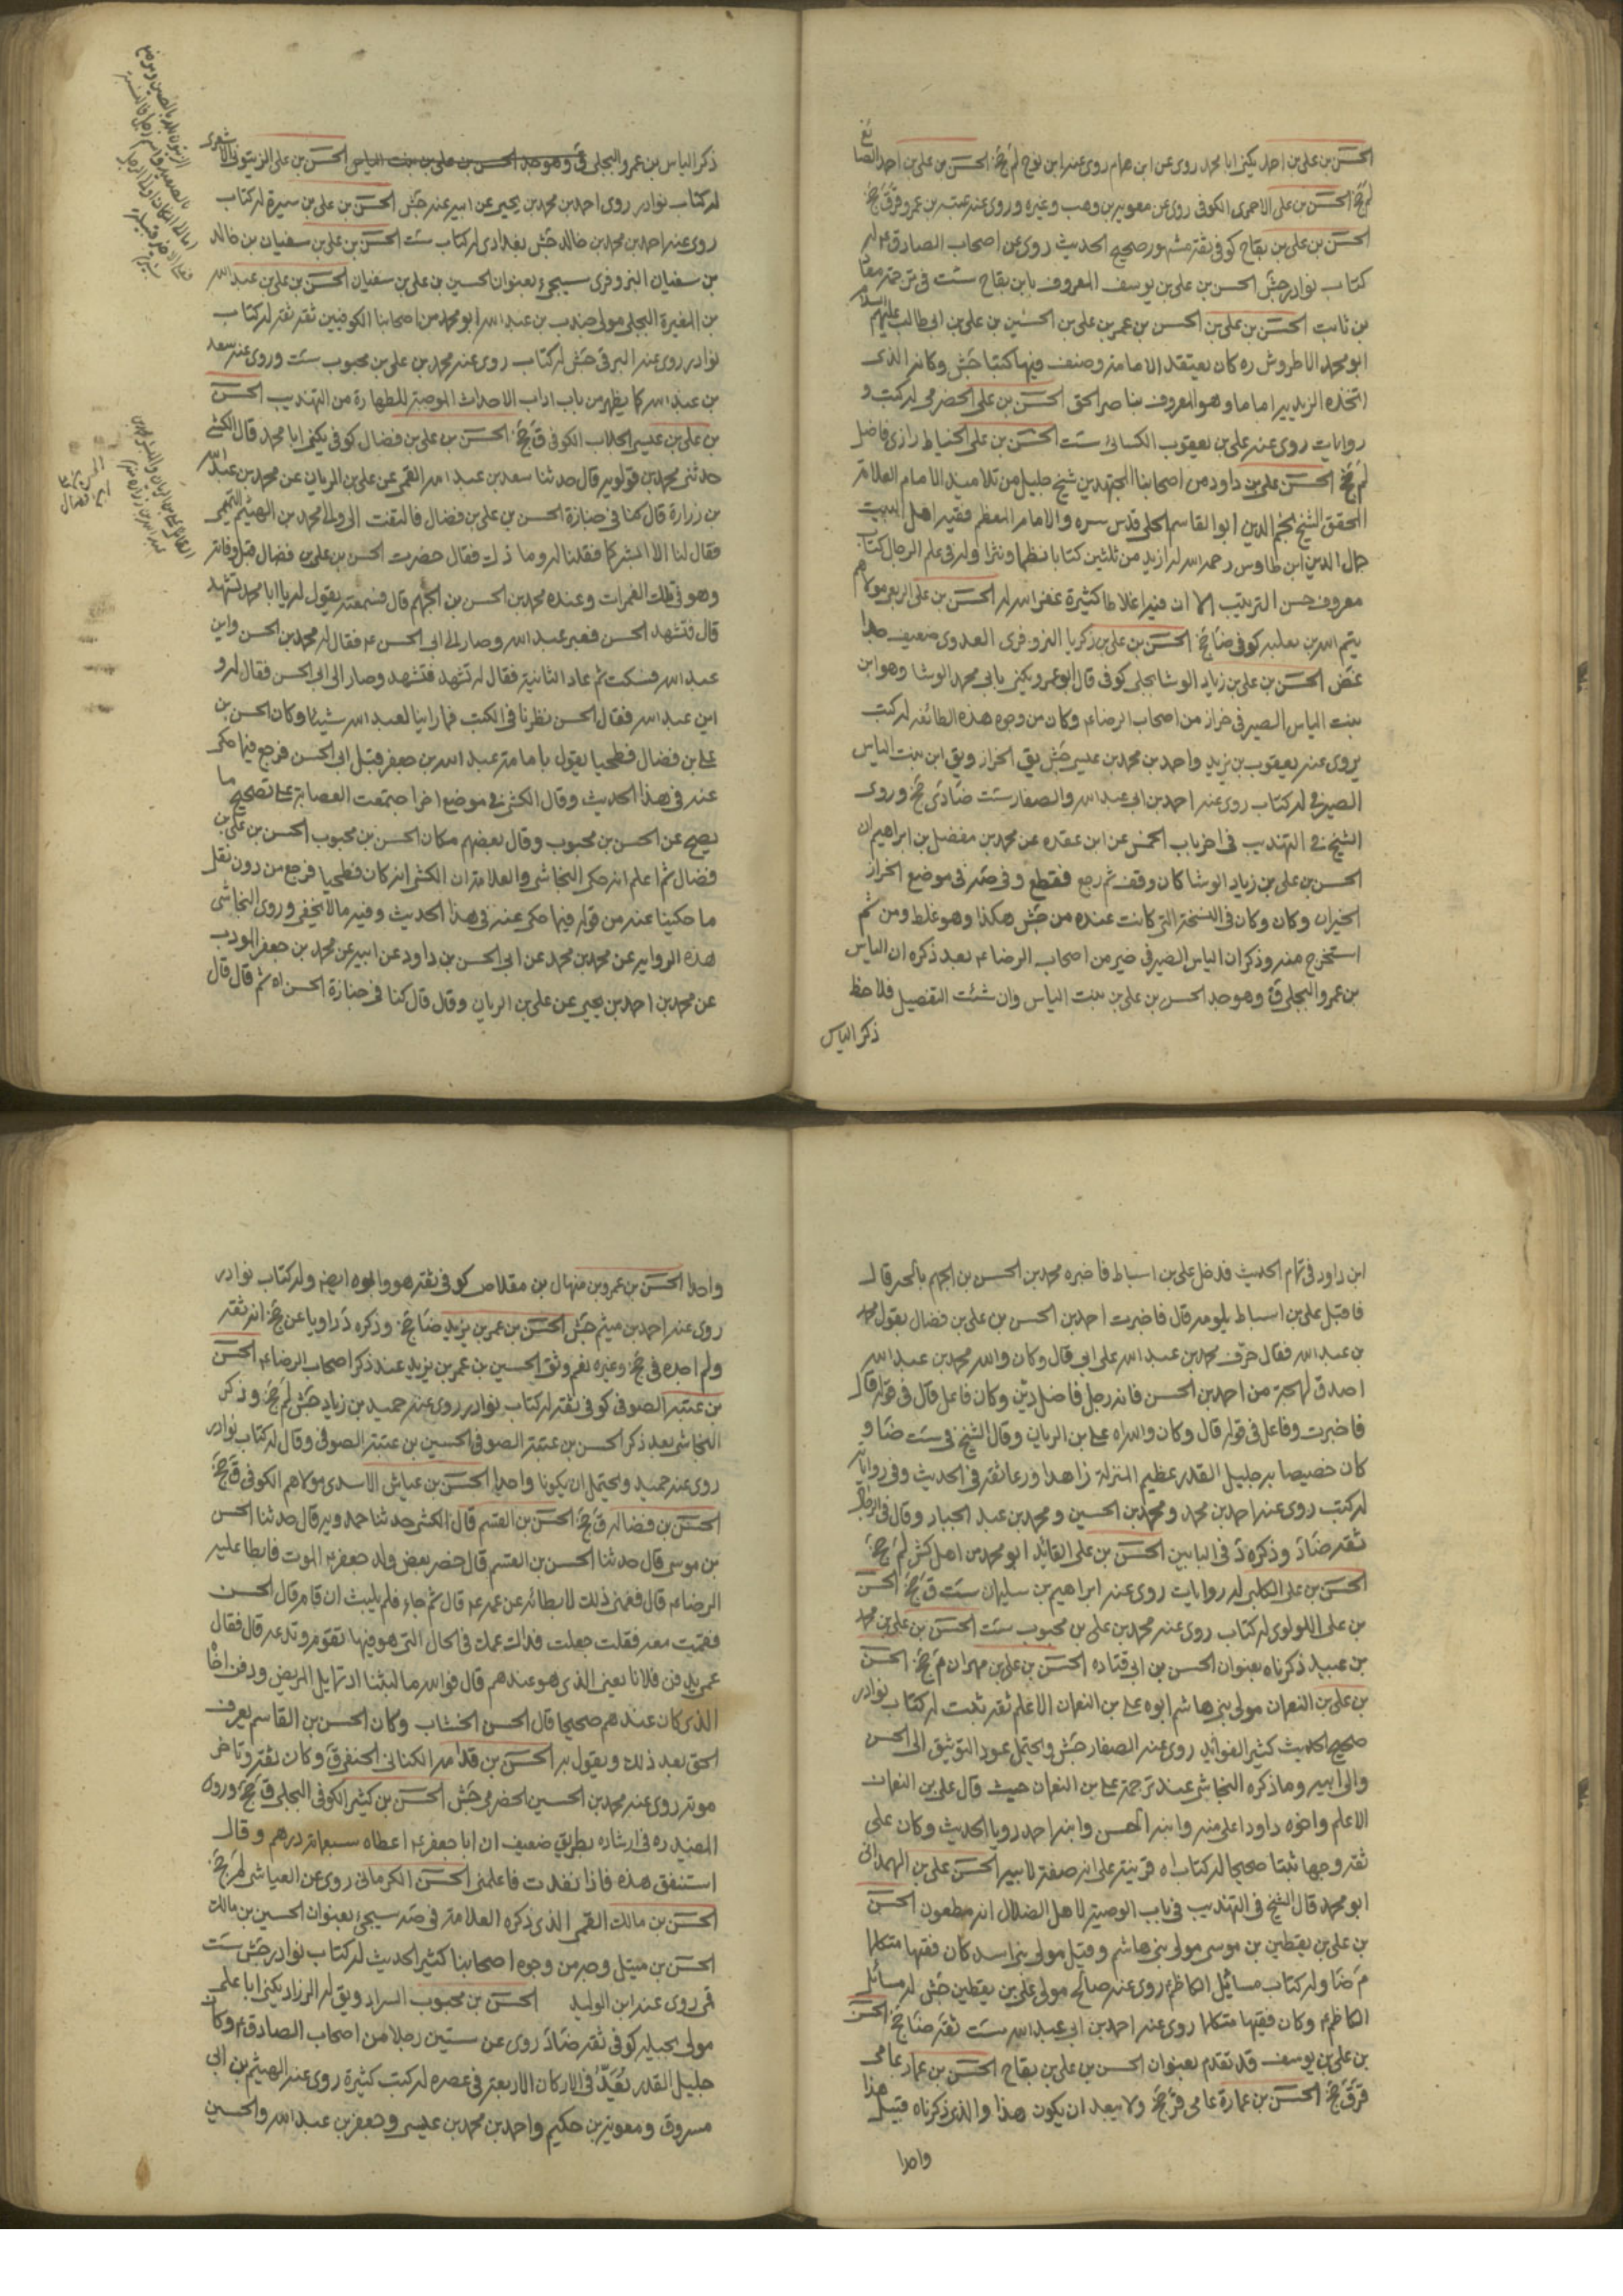 الحسن بن علي بن احمد يكنى ابا محمد روى عن ابن همام روى عنه ابن نوح لم جخ الحسن بن علي بن احمد الصائغ
لم جخ الحسن بن علي الاحمرى الكوفى روى عن معوية بن وهب وغيره وروى عنه عتبة بن عمرو ق جخ
الحسن بن علي بن بقاح كوفى ثقة مشهور صحيح الحديث روى عن اصحاب الصادق ع له
كتاب نوادر جش الحسن بن علي بن يوسف المعروف بابن بقاح ست فى ترجمة معاذ
بن ثابت الحسن بن علي بن الحسن بن عمر بن علي بن الحسين بن علي بن ابى طالب عليهم السلام
ابو محمد الاطروش ره كان يعتقد الامامة وصنف فيها كتبا جش وكانه الذى
اتخذه الزيدية اماما وهو المعروف بناصر الحق الحسن بن علي الحضرمى له كتب و
روايات روى عنه علي بن يعقوب الكسائى ست الحسن بن علي الخياط رازى فاضل
لم جخ الحسن علي بن داود من اصحابنا المجتهدين شيخ جليل من تلاميذ الامام العلامة
المحقق الشيخ نجم الدين ابو القاسم الحلى قدس سره والامام المعظم فقيه اهل البيت
جمال الدين ابن طاوس رحمه الله له ازيد من ثلثين كتابا نظما ونثرا وله فى علم الرجال كتاب
معروف حسن الترتيب الا ان فيه اغلاطا كثيرة غفر الله له الحسن بن علي الربعى مولاهم
تيم الله بن ثعلبة كوفى ضا جخ الحسن بن علي بن زكريا البزوفرى العدوى ضعيف جدا
غض الحسن بن علي بن زياد الوشا بجلى كوفى قال ابو عمرو يكنى بابى محمد الوشا وهو ابن
بنت الياس الصيرفى خزاز من اصحاب الرضا ع وكان من وجوه هذه الطائفة له كتب
يروى عنه يعقوب بن يزيد واحمد بن محمد بن عيسى جش يق الخزاز ويق ابن بنت الياس
الصيرفى له كتاب روى عنه احمد بن ابى عبد الله والصفار ست ضا دى جخ وروى
الشيخ فى التهذيب فى اخر باب الخمس عن ابن عقده عن محمد بن مفضل بن ابراهيم ان
الحسن بن علي بن زياد الوشا كان وقف ثم رجع فقطع وفى صه فى موضع الخزاز
الخيران وكان وكان فى النسخة التى كانت عنده من جش هكذا وهو غلط ومن ثم
استخرج منه وذكر ان الياس الصيرفى خير من اصحاب الرضا ع بعد ذكره ان الياس
بن عمرو البجلى ق وهو جد الحسن بن علي بن بنت الياس وان شئت التفصيل فلاحظ
ذكر الياس
ذكر الياس بن عمرو البجلى ق وهو جد الحسن بن علي بن بنت الياس الحسن بن علي الزيتونى الاشعرى
له كتاب نوادر روى احمد بن محمد بن يحيى عن ابيه عنه جش الحسن بن علي بن سبرة له كتاب
روى عنه احمد بن محمد بن خالد جش بغدادى له كتاب ست الحسن بن علي بن سفيان بن خالد
بن سفيان البزوفرى سيجىء بعنوان الحسين بن علي بن سفيان الحسن بن علي بن عبد الله
بن المغيرة البجلى مولى جندب بن عبد الله ابو محمد من اصحابنا الكوفيين ثقة ثقة له كتاب
نوادر روى عنه البرقى جش له كتاب روى عنه محمد بن علي بن محبوب ست وروى عنه سعد
بن عبد الله كما يظهر من باب اداب الاحداث الموجبة للطهارة من التهذيب الحسن
بن علي بن عيسى الجلاب الكوفى ق جخ الحسن بن علي بن فضال كوفى يكنى ابا محمد قال الكشى
حدثنى محمد بن قولويه قال حدثنا سعد بن عبد الله القمى عن علي بن الريان عن محمد بن عبد الله
بن زرارة قال كنا فى جنازة الحسن بن علي بن فضال فالتفت الى والى محمد بن الهيثم التميمى
فقال لنا الا ابشركما فقلنا له وما ذلك فقال حضرت الحسن بن علي بن فضال قبل وفاته
وهو فى تلك الغمرات وعنده محمد بن الحسن بن الجهم قال فسمعته يقول له يا ابا محمد تشهد
قال فتشهد الحسن فعبر عبد الله وصار الى ابى الحسن ع فقال له محمد بن الحسن واين
عبد الله فسكت ثم عاد الثانية فقال له تشهد فتشهد وصار الى ابى الحسن فقال له و
اين عبد الله فقال الحسن نظرنا فى الكتب فما راينا لعبد الله شيئا وكان الحسن بن
علي بن فضال فطحيا يقول بامامة عبد الله بن جعفر قبل ابى الحسن فرجع فيما حكى
عنه فى هذا الحديث وقال الكشى فى موضع اخر اجتمعت العصابة على تصحيح ما
يصح عن الحسن بن محبوب وقال بعضهم مكان الحسن بن محبوب الحسن بن علي بن
فضال ثم اعلم انه حكى النجاشى والعلامة ان الكشى انه كان فطحيا فرجع من دون نقل
ما حكينا عنه من قوله فيما حكى عنه فى هذا الحديث وفيه ما لا يخفى وروى النجاشى
هذه الرواية عن محمد بن محمد عن ابى الحسن بن داود عن ابيه عن محمد بن جعفر المودب
عن محمد بن احمد بن يحيى عن علي بن الريان وقل قال كنا فى جنازة الحسن اه ثم قال قال
الحسن بن علي
ابن فضال
ابن داود فى تمام الحديث فدخل علي بن اسباط فاخبره محمد بن الحسن بن الجهم بالخبر قال
فاقبل علي بن اسباط يلومه قال فاخبرت احمد بن الحسن بن علي بن فضال بقول محمد
بن عبد الله فقال حرف محمد بن عبد الله على ابى قال وكان والله محمد بن عبد الله
اصدق لهجة من احمد بن الحسن فانه رجل فاضل دين وكان فاعل قال فى قوله قال
فاخبرت وفاعل فى قوله قال وكان والله اه علي بن الريان وقال الشيخ فى ست ضا و
كان خصيصا به جليل القدر عظيم المنزلة زاهدا ورعا ثقة فى الحديث وفى رواياته
له كتب روى عنه احمد بن محمد و محمد بن الحسين و محمد بن عبد الجبار وقال فى الرجال
ثقة ضا د وذكره د فى البابين الحسن بن علي القائد ابو محمد من اهل كش لم جخ
الحسن بن علي الكلبى له روايات روى عنه ابراهيم بن سليمان ست ق جخ الحسن
بن علي اللولوى له كتاب روى عنه محمد بن علي بن محبوب ست الحسن بن علي بن محمد
بن عبيد ذكرناه بعنوان الحسن بن ابى قتاده الحسن بن علي بن مهران م جخ الحسن
بن علي بن النعمان مولى بنى هاشم ابوه علي بن النعمان الاعلم ثقة ثبت له كتاب نوادر
صحيح الحديث كثير الفوائد روى عنه الصفار جش ويحتمل عود التوثيق الى الحسن
والى ابيه وما ذكره النجاشى عند ترجمة علي بن النعمان حيث قال علي بن النعمان
الاعلم واخوه داود اعلى منه وابنه الحسن وابنه احمد رويا الحديث وكان علي
ثقة وجها ثبتا صحيحا له كتاب اه قرينة على انه صفة لابيه الحسن علي بن الهمدانى
ابو محمد قال الشيخ فى التهذيب فى باب الوصية لاهل الضلال انه مطعون الحسن
بن علي بن يقطين بن موسى مولى بنى هاشم وقيل مولى بنى اسد كان فقيها متكلما
م ضا وله كتاب مسائل الكاظم ع روى عنه صالح مولى علي بن يقطين جش له مسائل
الكاظم ع وكان فقيها متكلما روى عنه احمد بن ابى عبد الله ست ثقة ضا جخ الحسن
بن علي بن يوسف قد تقدم بعنوان الحسن بن علي بن بقاح الحسن بن عمار عامى
قر ق جخ الحسن بن عمارة عامى قر جخ ولا يبعد ان يكون هذا والذى ذكرناه قبيل هذا
واحدا
واحدا الحسن بن عمرو بن منهال بن مقلاص كوفى ثقة هو وابوه ايضا وله كتاب نوادر
روى عنه احمد بن ميثم جش الحسن بن عمر بن يزيد ضا جخ وذكره د راويا عن جخ انه ثقة
ولم اجده فى جخ وغيره نعم وثق الحسين بن عمر بن يزيد عند ذكر اصحاب الرضا ع الحسن
بن عتبة الصوفى كوفى ثقة له كتاب نوادر روى عنه حميد بن زياد جش لم جخ وذكر
النجاشى بعد ذكر الحسن بن عتبة الصوفى الحسين بن عتبة الصوفى وقال له كتاب نوادر
روى عنه حميد ويحتمل ان يكونا واحدا الحسن بن عياش الاسدى مولاهم الكوفى ق جخ
الحسن بن فضاله ق جخ الحسن بن القسم قال الكشى حدثنا حمدويه قال حدثنا الحسن
بن موسى قال حدثنا الحسن بن القسم قال حضر بعض ولد جعفر ع الموت فابطا عليه
الرضا ع قال فغمنى ذلك لابطائه عن عمه ع قال ثم جاء فلم يلبث ان قام قال الحسن
فقمت معه فقلت جعلت فداك عمك فى الحال التى هو فيها تقوم وتدعه قال فقال
عمى يدفن فلانا يعنى الذى هو عندهم قال فوالله ما لبثنا ان تماثل المريض ودفن اخاه
الذى كان عندهم صحيحا قال الحسن الخشاب وكان الحسن بن القاسم يعرف
الحق بعد ذلك ويقول به الحسن بن قدامه الكنانى الحنفى ق وكان ثقة وتاخر
موته روى عنه محمد بن الحسين الحضرمى جش الحسن بن كثير الكوفى البجلى ق جخ وروى
المفيد ره فى ارشاده بطريق ضعيف ان ابا جعفر ع اعطاه سبعمائة درهم وقال
استنفق هذه فاذا نفدت فاعلمنى الحسن الكرمانى روى عن العياشى لم جخ
الحسن بن مالك القمى الذى ذكره العلامة فى صه سيجئ بعنوان الحسين بن مالك
الحسن بن متيل وجه من وجوه اصحابنا كثير الحديث له كتاب نوادر جش ست
قمى روى عنه ابن الوليد الحسن بن محبوب السراد ويق له الزراد يكنى ابا علي
مولى بجيله كوفى ثقة ضا د روى عن ستين رجلا من اصحاب الصادق ع وكان
جليل القدر يعد فى الاركان الاربعة فى عصره له كتب كثيرة روى عنه الهيثم بن ابى
مسروق ومعوية بن حكيم واحمد بن محمد بن عيسى وجعفر بن عبد الله والحسين